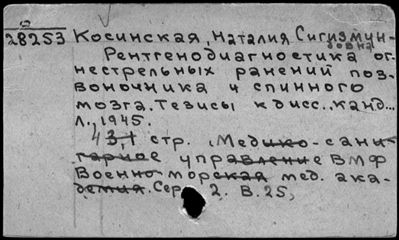 28253 Косинская, Наталия Сигизмун-
довна
Рентгенодиагностика ог-
нестрельных ранений поз-
воночника и спинного
мозга. Тезисы к дисс.. канд...
Л., 1945.
43,1 стр. (Медико-сани-
тарное управление ВМФ
Военно морская мед. ака-
демия. Сер. 2. В. 25,